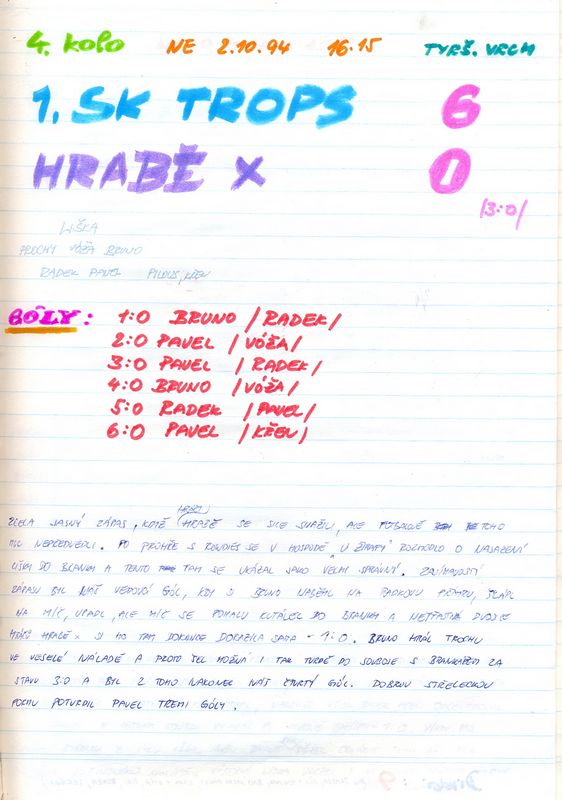 4. KOLO NE 2.10.94 16.15 TYRŠ. VRCH
1. SK TROPS 6
HRABĚ X 0
/3:0/
LIŠKA
PROCHY VÓŽA BRUNO
RADEK PAVEL PILOUS, KŘEN
GÓLY:
1:0 BRUNO /RADEK/
2:0 PAVEL /VÓŽA/
3:0 PAVEL /RADEK/
4:0 BRUNO /VÓŽA/
5:0 RADEK /PAVEL/
6:0 PAVEL /KŘEN/
HRÁČI
ZCELA JASNÝ ZÁPAS, KDYŽ HRABĚ SE SICE SNAŽILI, ALE FOTBALOVĚ TOHO
MOC NEPŘEDVEDLI. PO PROHŘE S ROWDIES SE V HOSPODĚ „U ŽIRAFY" ROZHODLO O NASAZENÍ
LIŠKY DO BRANKY A TENTO TAH SE UKÁZAL JAKO VELMI SPRÁVNÝ. ZAJÍMAVOSTÍ
ZÁPASU BYL NÁŠ VEDOUCÍ GÓL, KDY SI BRUNO NABĚHL NA RADKOVU PŘIHRÁVKU, ŠLÁPL
NA MÍČ, UPADL, ALE MÍČ SE POMALU KUTÁLEL DO BRANKY A NEŠŤASTNÁ DVOJICE
HRÁČŮ HRABĚ X SI HO TAM DOKONCE DORAZILA SAMA - 1:0. BRUNO HRÁL TROCHU
VE VESELÉ NÁLADĚ A PROTO ŠEL MOŽNÁ I TAK TVRDĚ DO SOUBOJE S BRANKÁŘEM ZA
STAVU 3:0 A BYL Z TOHO NAKONEC NÁŠ ČTVRTÝ GÓL. DOBROU STŘELECKOU
FORMU POTVRDIL PAVEL TŘEMI GÓLY.